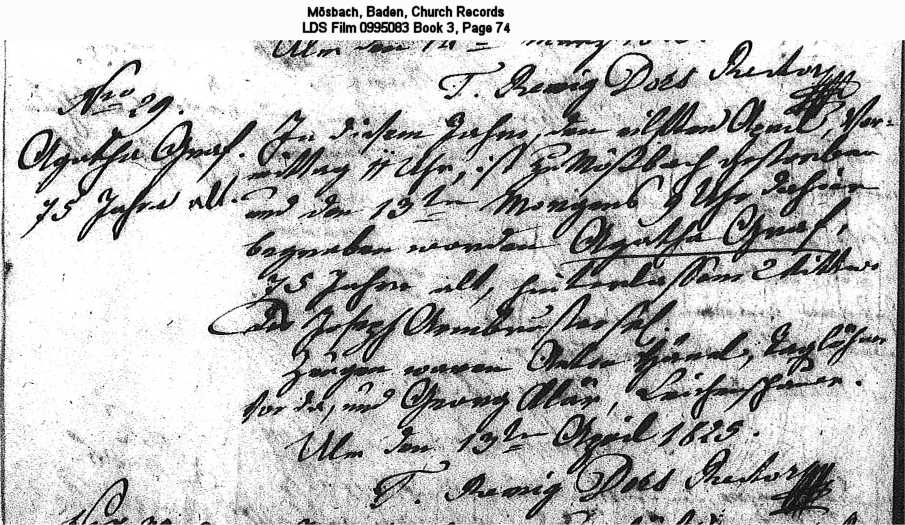 Mösbach, Baden, Church Records
LDS Film 0995083 Book 3, Page 74
Ulm den 12ten März
T. Remig Dors Rector
Nro 29.
Agatha Graf.
75 Jahre alt.
In diesem Jahre, den eilften April, Vor-
mittag 11 Uhr, ist zu Mößbach gestorben
und den 13ten Morgens 9 Uhr dahier
begraben worden Agatha Graf,
75 Jahre alt, hinterlassene Wittwe
des Joseph Armbruster sel.
Zeugen waren Anton, Taglöhner
von da, und Georg Klär, Leichenschauer.
Ulm den 13ten April 1825.
T. Remig Dors Rector